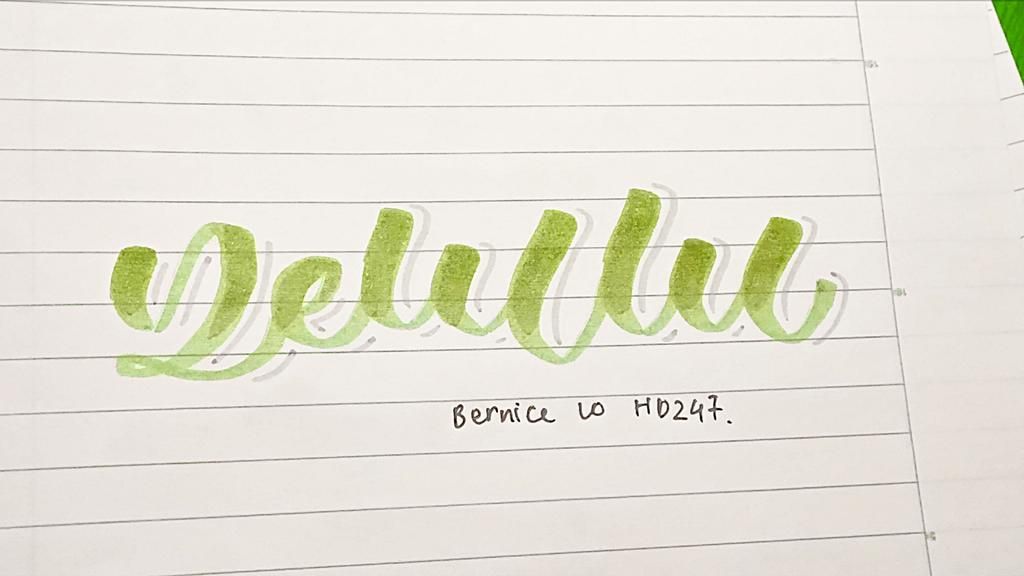 Delulu
Bernice Lo HD247.